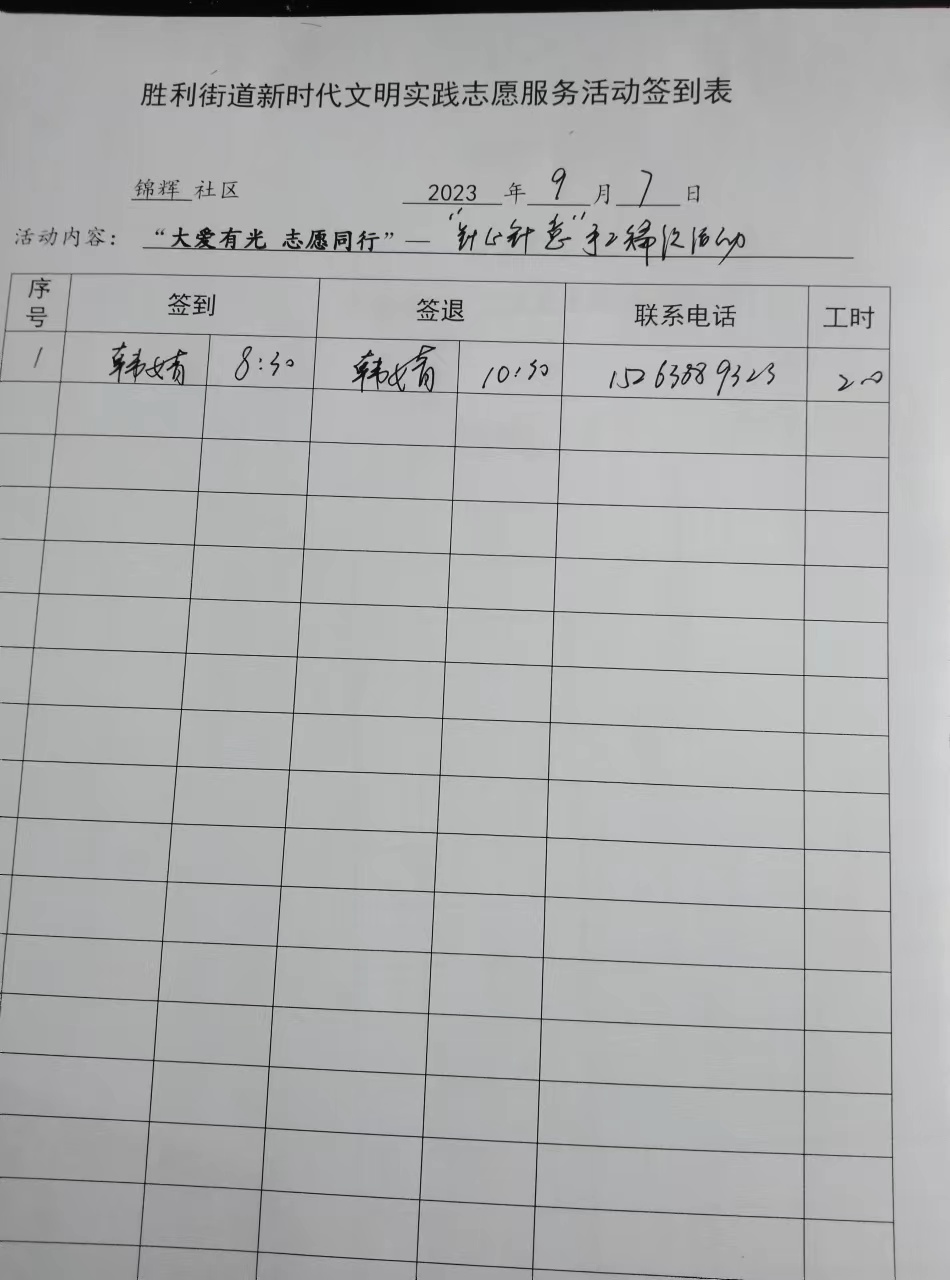 胜利街道新时代文明实践志愿服务活动签到表
锦辉 社区 2023 年 9 月 7 日
活动内容： “大爱有光 志愿同行”— 手工 活动
序号 签到 签退 联系电话 工时
1 韩婧 8:30 韩婧 10:30 15263889323 2.0